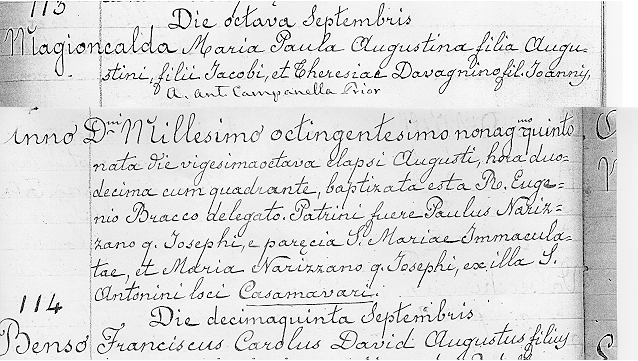 113
Die octava Septembris
Magioncalda Maria Paula Augustina filia Augu=
stini, filii Jacobi, et Theresiae Davagnino fil. Joannis,
A. Ant Campanella Prior
Anno Dni Millesimo octingentesimo nonagmo quinto
nata die vigesimaoctava elapsi Augusti, hora duo=
decima cum quadrante, baptizata est a R. Euge=
nio Bracco delegato. Patrini fuere Paulus Nariz=
zano q. Josephi, e parecia S. Mariae Immacula=
tae, et Maria Narizzano q. Josephi, ex illa S.
Antonini loci Casamavari.
114
Die decimaquinta Septembris
Benso Franciscus Carolus David Augustus filius